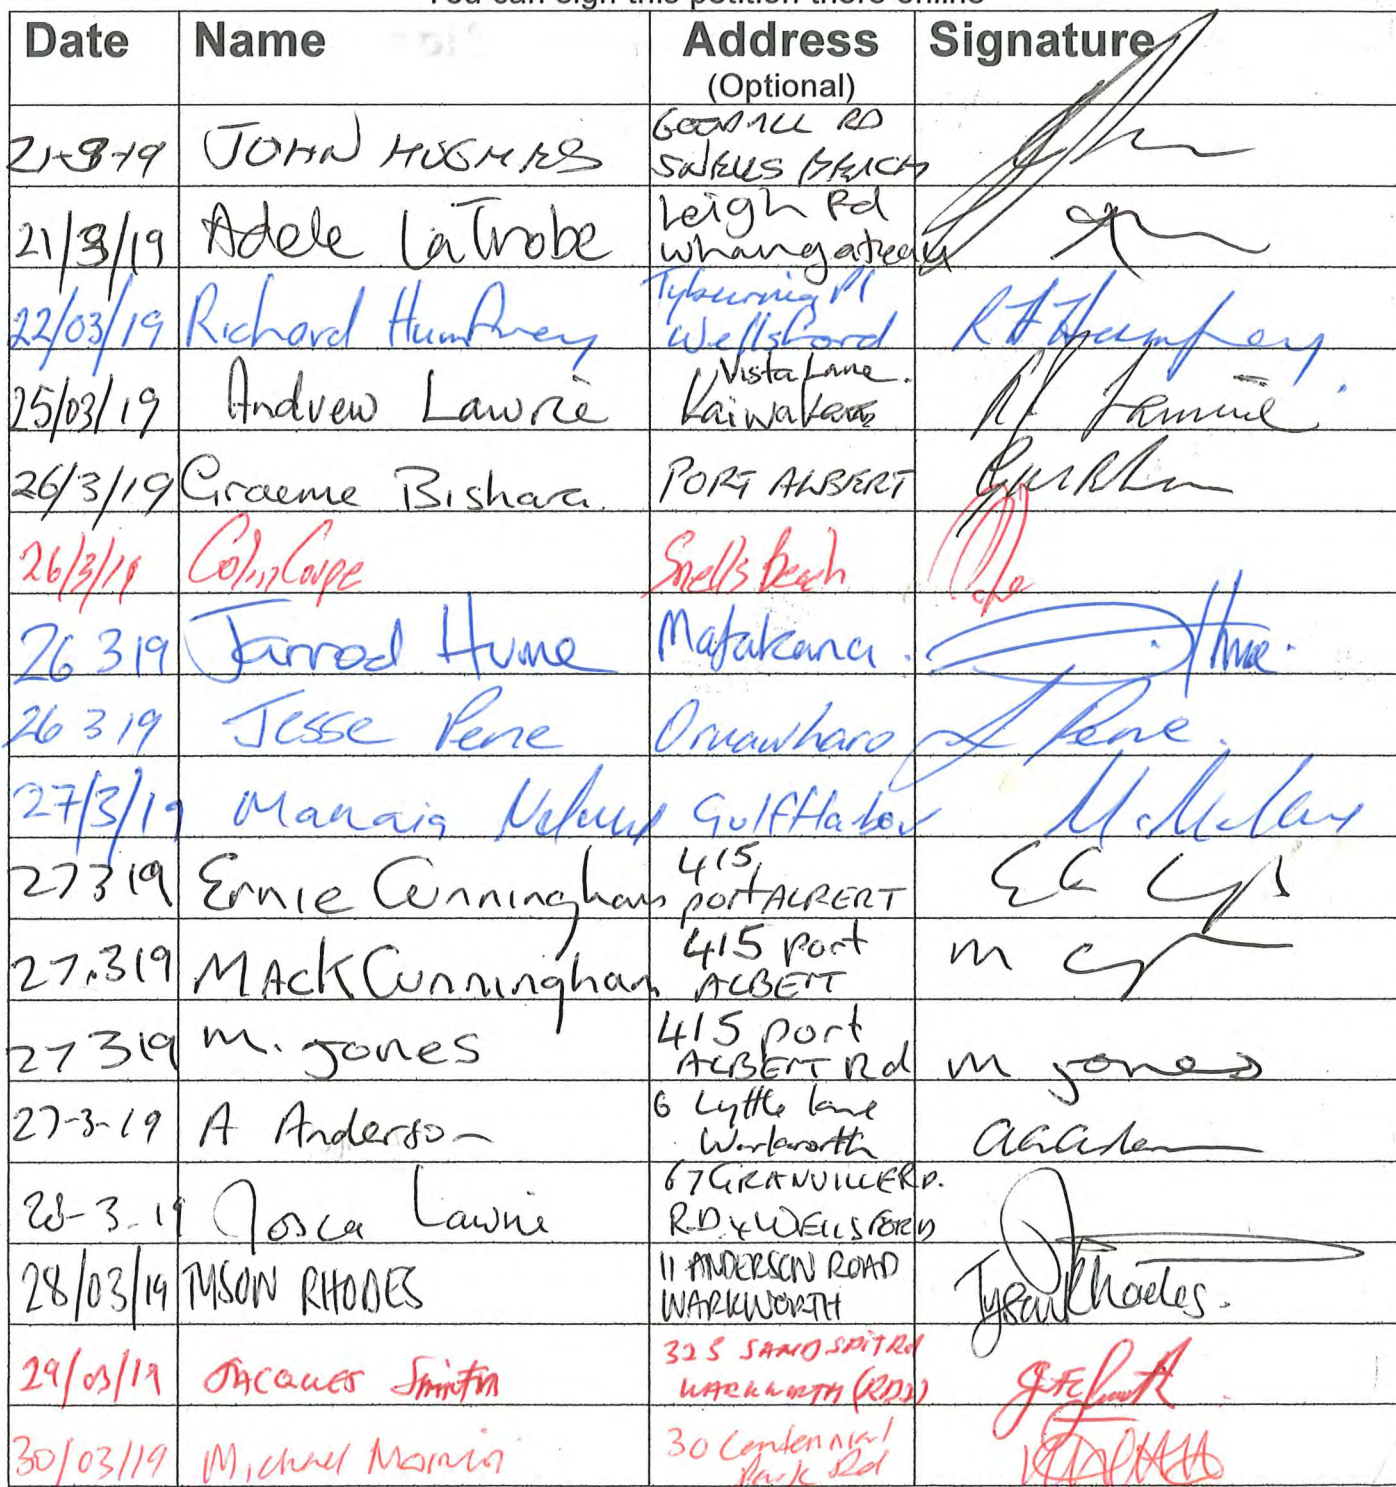 You can sign this petition there online
Date Name Address Signature
(Optional)
21-3-19 JOHN HUGHES GOODALL RD
SNELLS BEACH
21/3/19 Adele LaTrobe Leigh Rd
whangateau
22/03/19 Richard Humfrey Pl
Wellsford R Humfrey
25/03/19 Andrew Lawrie Vista Lane.
Kaiwaka
26/3/19 Graeme Bishara. PORT ALBERT
26/3/19 Colin Coupe Snells Beach
26 3 19 Jarrod Hume Matakana. J Hume.
26 3 19 Jesse Pene Oruawharo J Pene.
27/3/19 Manaia Gulf Habor
27 3 19 Ernie Cunningham 415
port ALBERT
27.3 19 MAck Cunningham 415 port
ALBERT M C
27 3 19 M. Jones 415 port
ALBERT Rd M Jones
27-3-19 A Anderson 6 Lyttle lane
Warkworth
28-3-19 Josca Lawrie 67 GRANVILLE RD.
RD 4 WELLSFORD
28/03/19 TYSON RHODES 11 ANDERSON ROAD
WARKWORTH Tyson Rhodes.
29/03/19 JACQUES Smith 325 SANDSPIT Rd
WARKWORTH (RD2)
30/03/19 Michael 30 Centennial
Park Rd